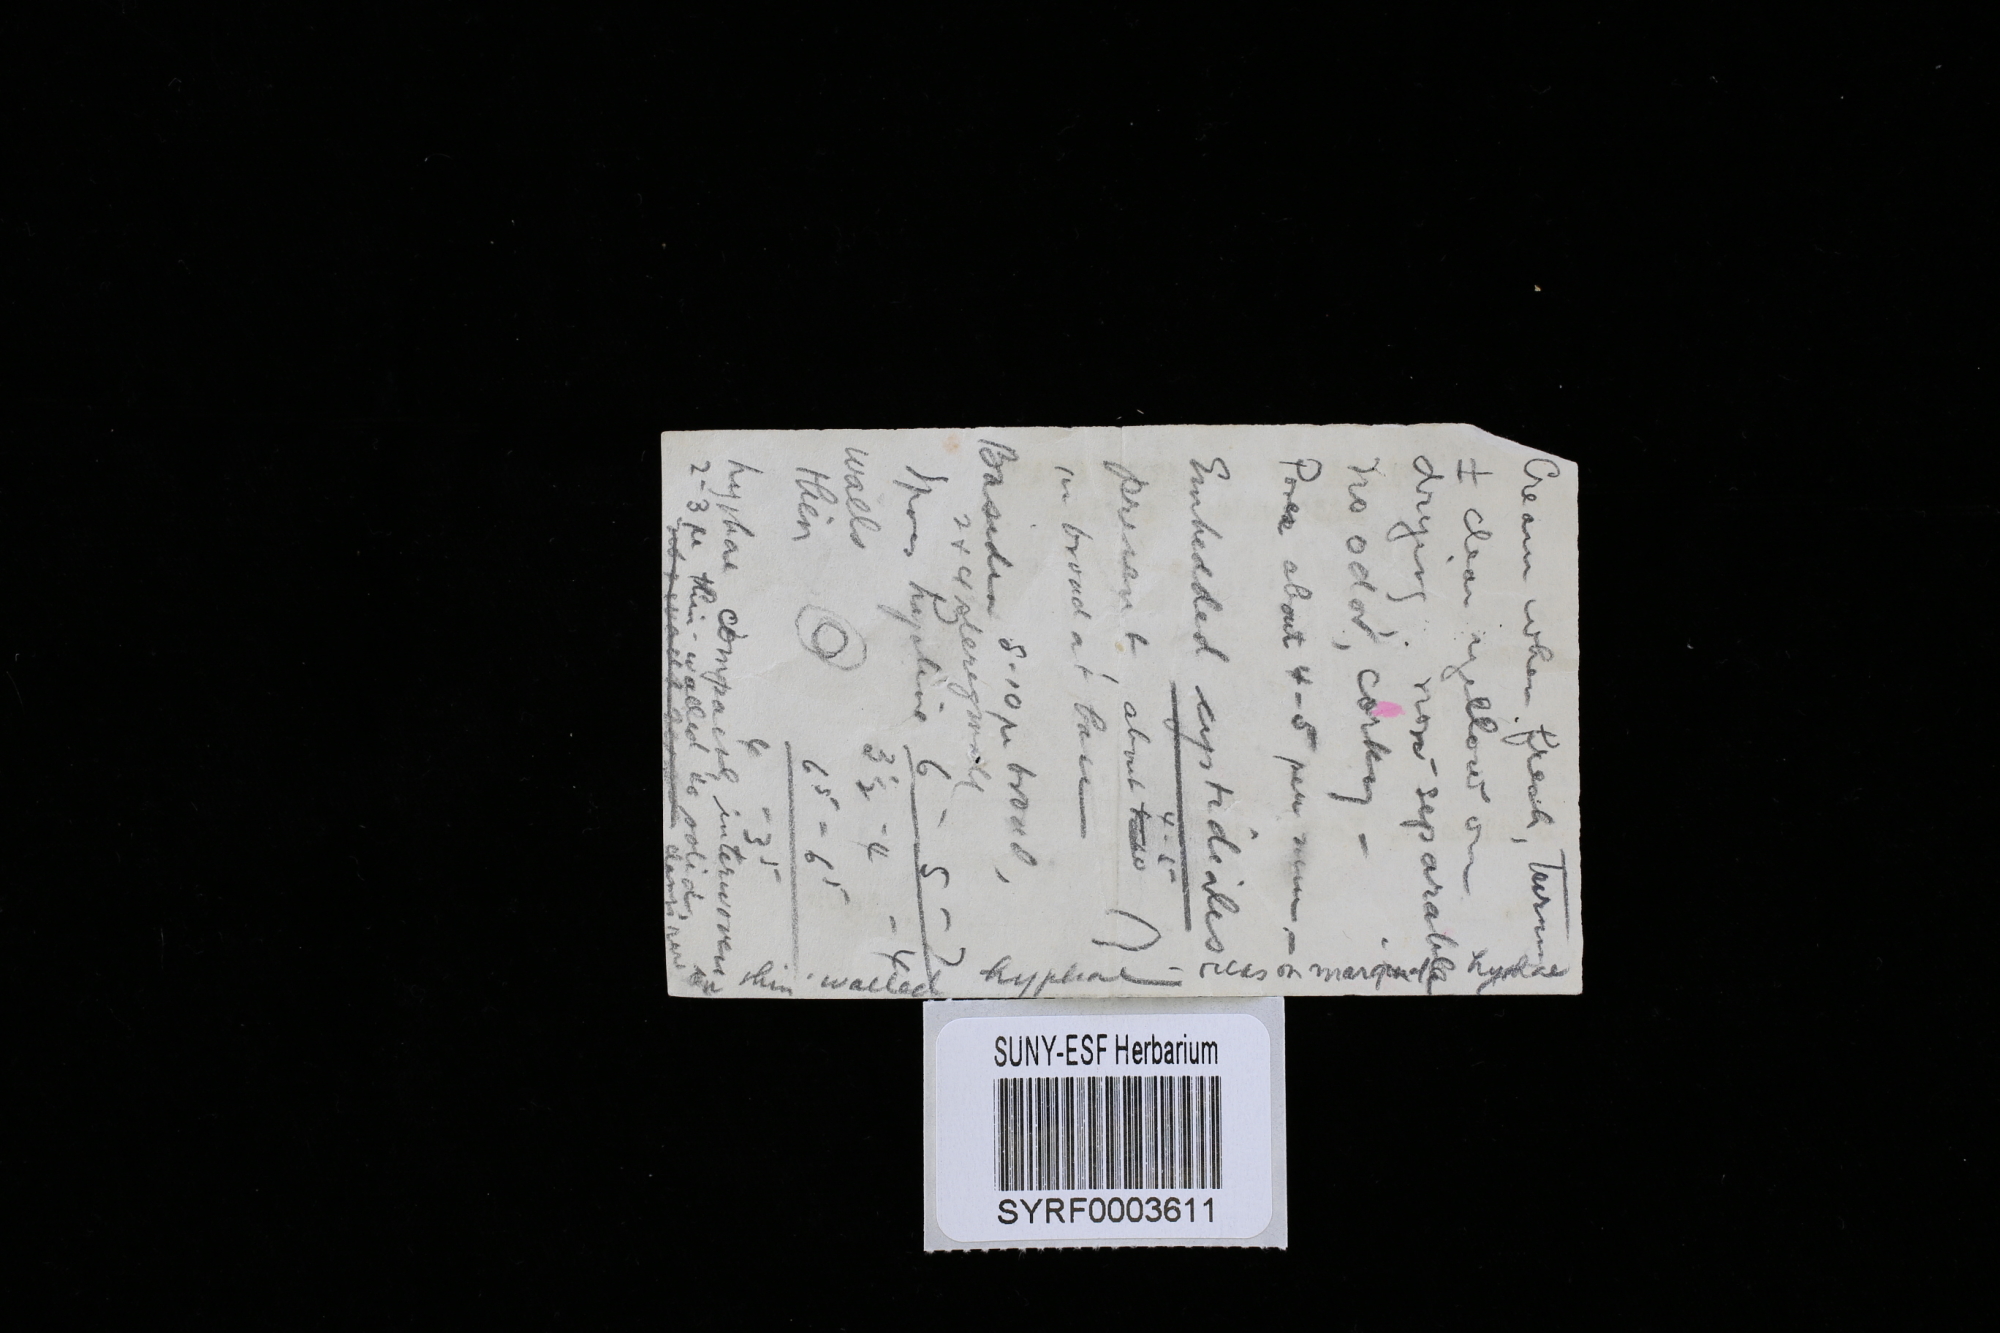 Cream when fresh, Turning
± clear yellow on
drying; now separable
no odor; corky -
Pores about 4-5 per mm -
Embedded cystidioles
present, about 4-5
in broad at base
Basidia 8-10 µ broad,
2 + 4 sterigmata
Spores hyaline 6 - 5 - 7
walls 3½ - 4 - 4
thin 65 - 65
4 - 35
hyphae compact interwoven
2-3 µ thin-walled to solid,
thin-walled hyphae - on margin hyphae
SUNY-ESF Herbarium
SYRF0003611